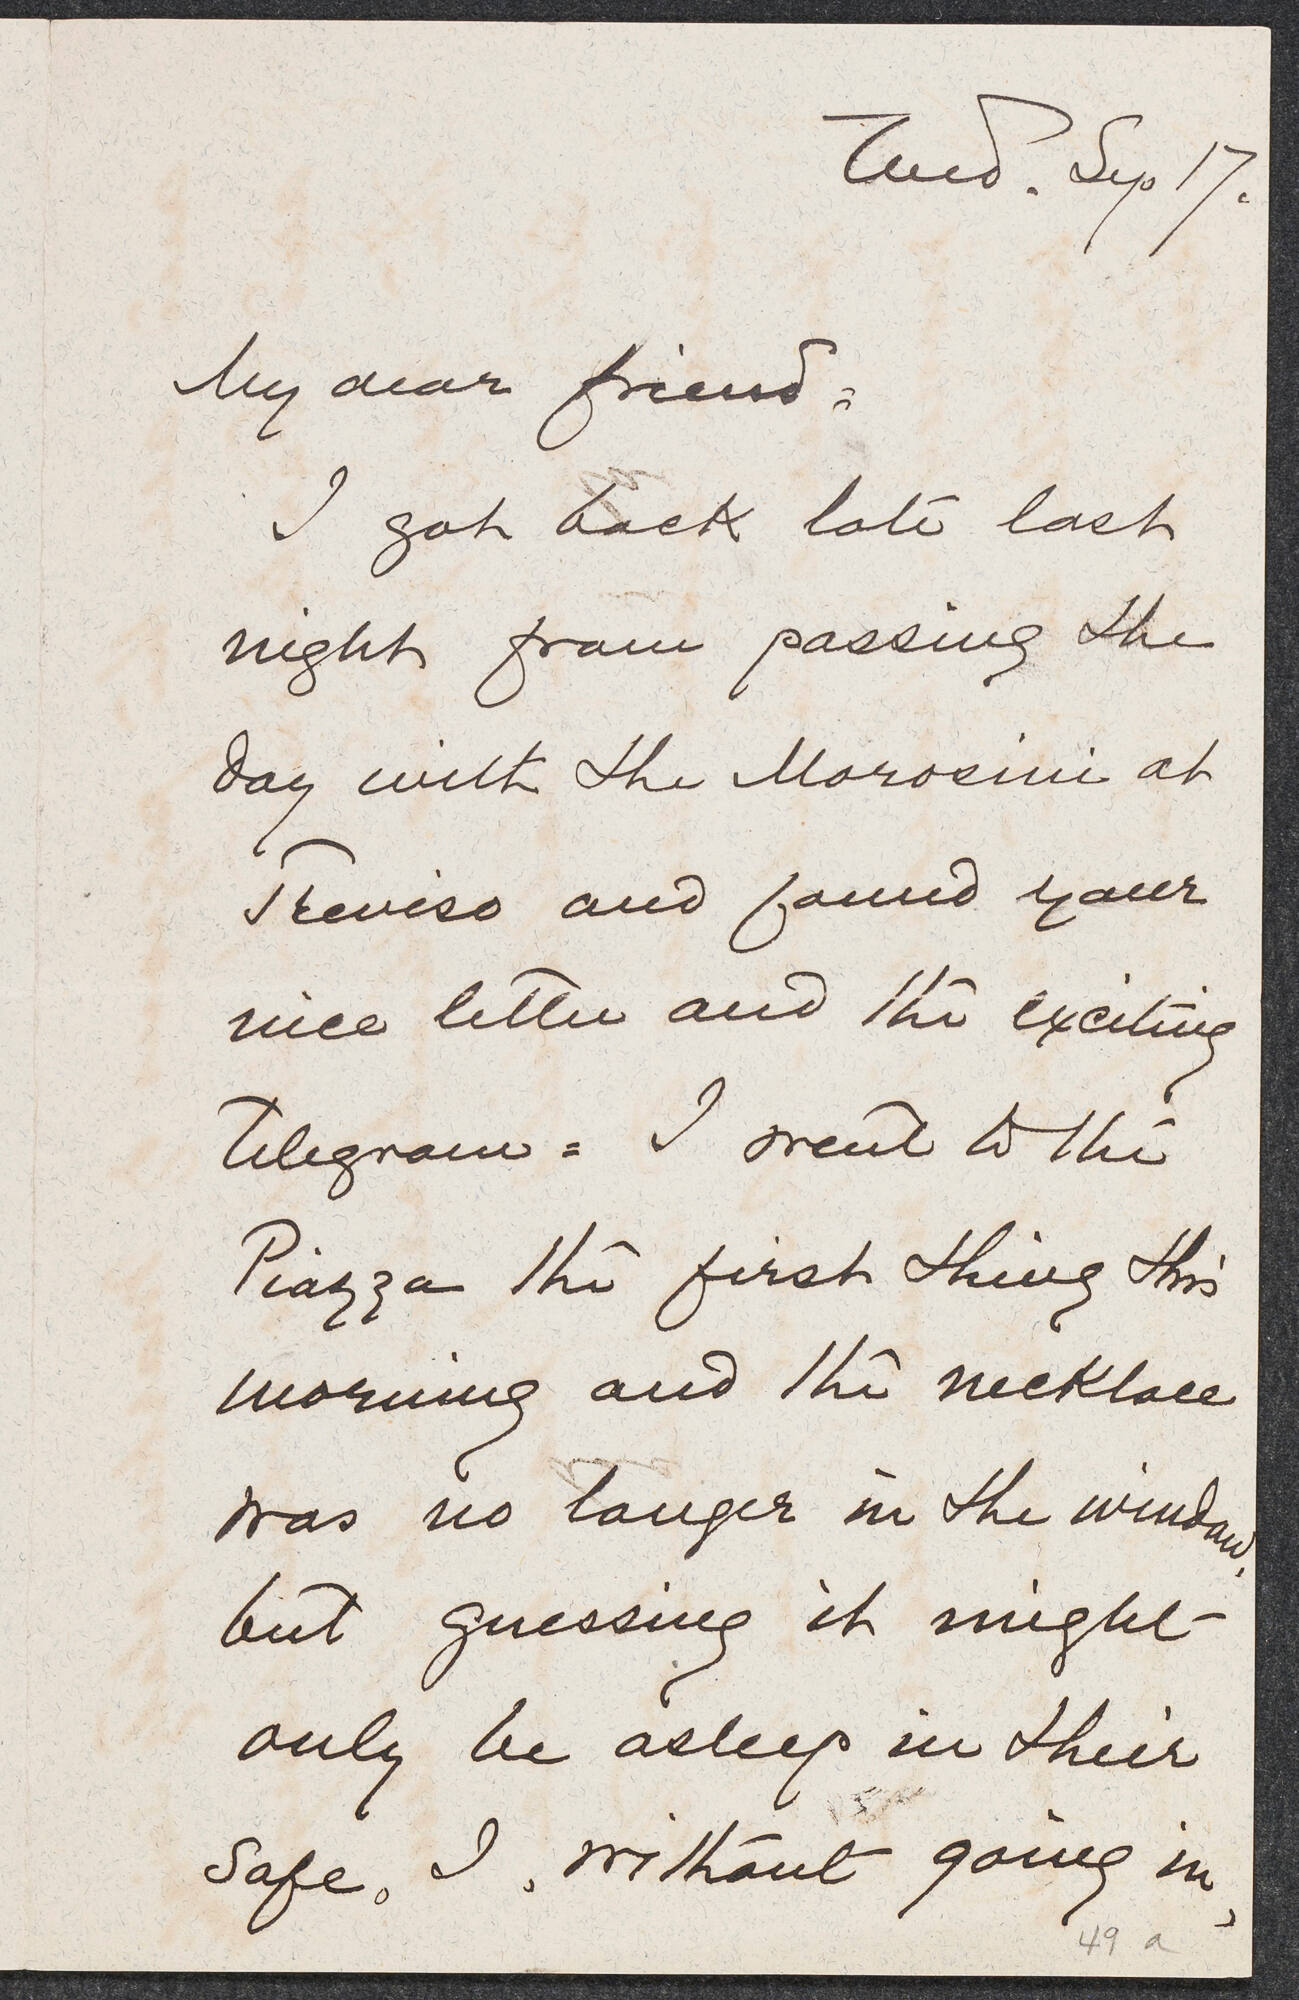 Tued. Sep 17.
My dear friend =
I got back late last
night from passing the
day with the Morosini at
Treviso and found your
nice letter and the exciting
telegram = I went to the
Piazza the first thing this
morning and the necklace
was no longer in the window,
but guessing it might
only be asleep in their
safe, I, without going in,
49 a